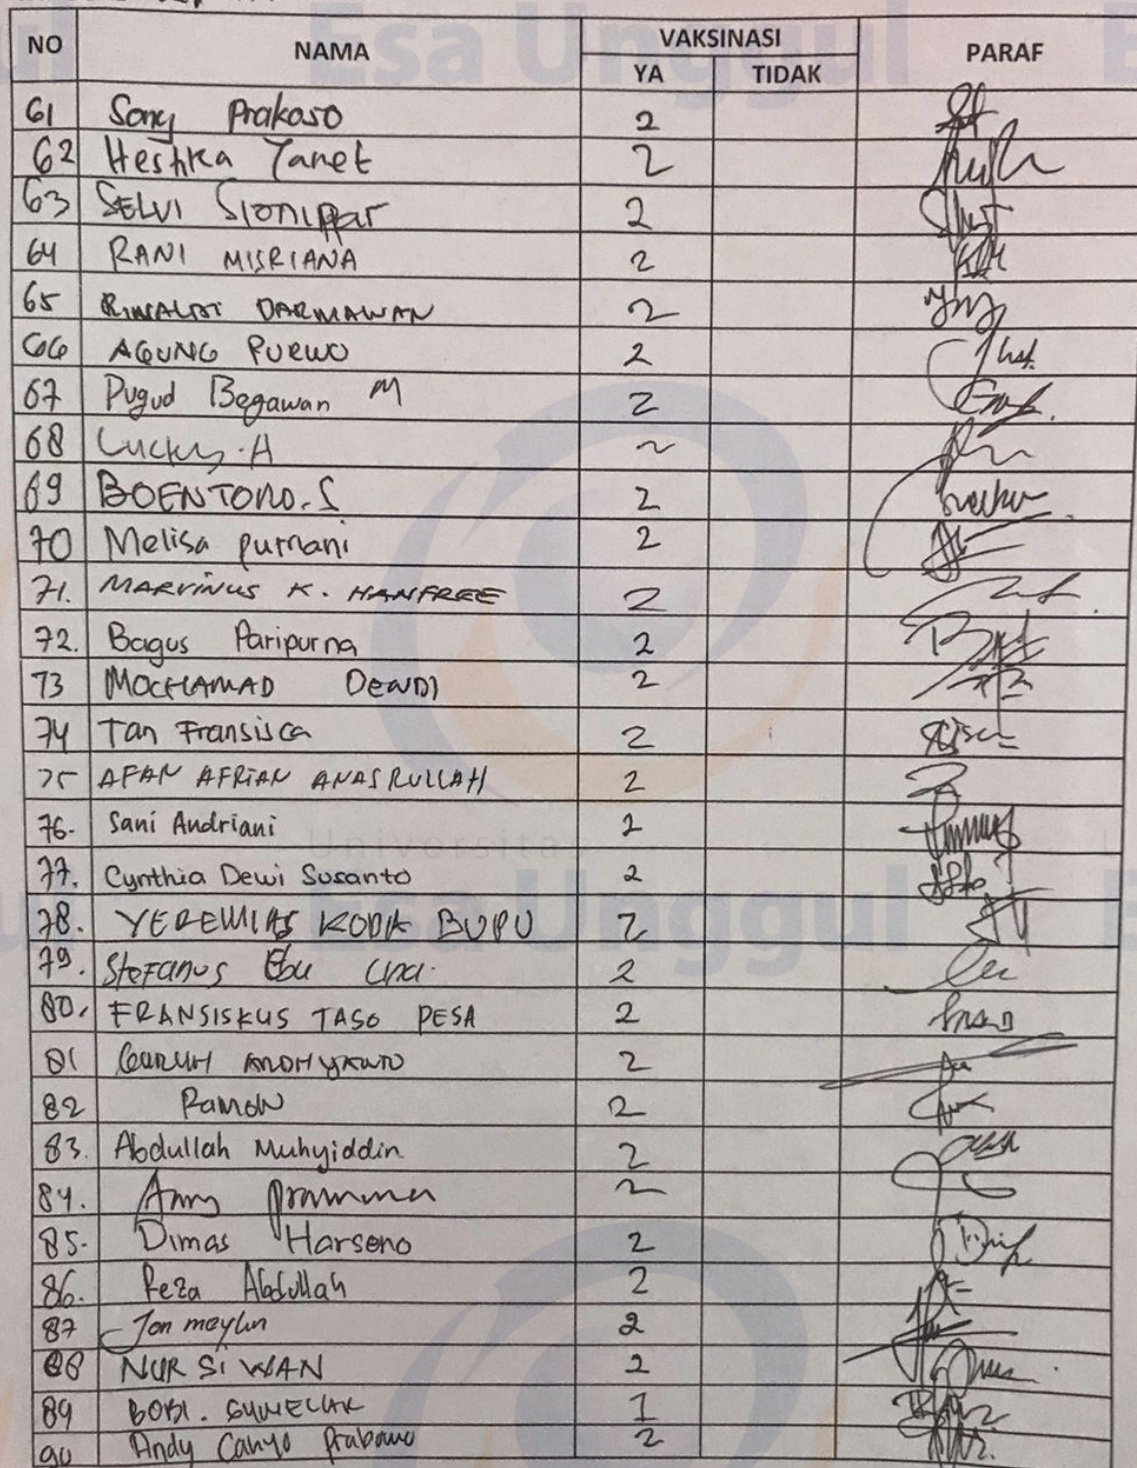 NO NAMA VAKSINASI PARAF
YA TIDAK
61 Sony Prakoso 2
62 Heshka Yanet 2
63 SELVI Sionippar 2
64 RANI MISRIANA 2
65 RINALDI DARMAWAN 2
66 AGUNG PURWO 2
67 Pugud Begawan M 2
68 Lucky. A 2
69 BOENTORO. S 2
70 Melisa purnani 2
71. MARVINUS K. HANFREE 2
72. Bagus Paripurna 2
73 MOCHAMAD DENDI 2
74 Tan Fransisca 2
75 AFAN AFRIAN ANASRULLAH 2
76. Sani Andriani 2
77. Cynthia Dewi Susanto 2
78. YEREMIAS KODA BUPU 2
79. Stefanus Ebu 2
80. FRANSISKUS TASO PESA 2
81 GURUH ANDHYKATO 2
82 Ramon 2
83. Abdullah Muhyiddin 2
84. 2
85. Dimas Harseno 2
86. Reza Abdullah 2
87 Jon meylin 2
88 NUR SIWAN 2
89 BOBI. 1
90 Andy Cahyo Prabowo 2
Esa Unggul
Universitas
Esa Unggul